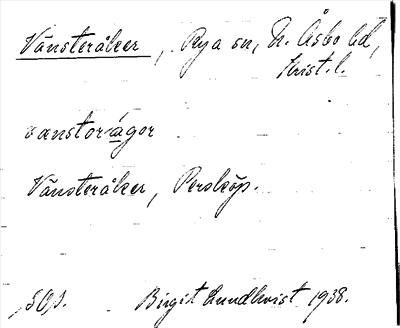 Vänsteråker, Rya sn, N. Åsbo hd,
Krist. l.
vænstoråger
Vänsteråker, Perstorp.
Birgit Lundkvist 1938.